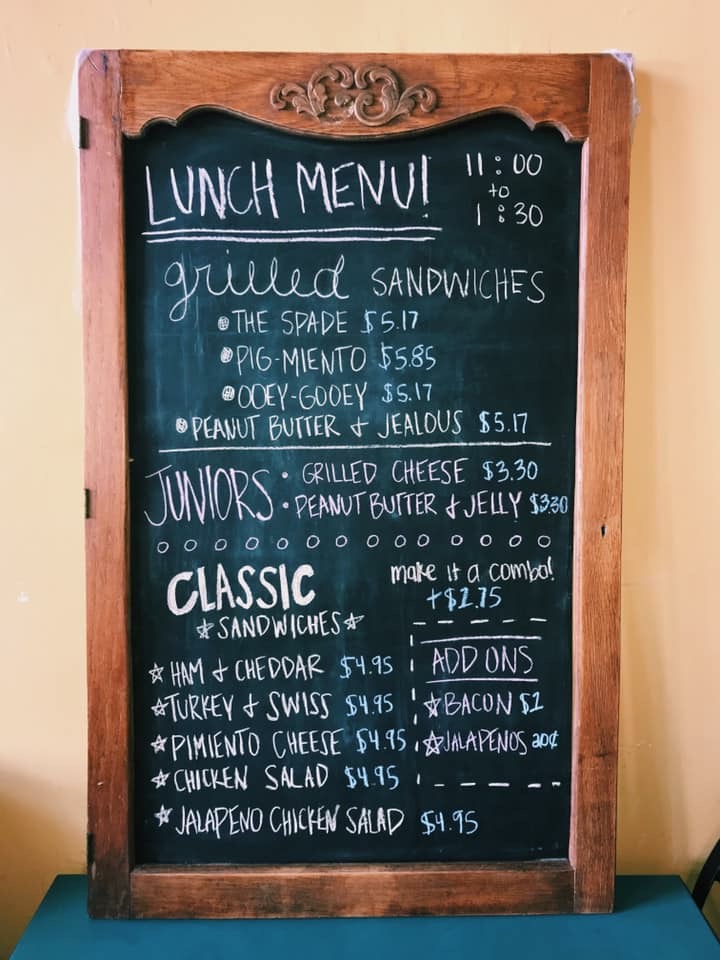 LUNCH MENU!
11:00
to
1:30
grilled SANDWICHES
THE SPADE $5.17
PIG-MIENTO $5.85
OOEY-GOOEY $5.17
PEANUT BUTTER & JEALOUS $5.17
JUNIORS
GRILLED CHEESE $3.30
PEANUT BUTTER & JELLY $3.30
CLASSIC
SANDWICHES
HAM & CHEDDAR $4.95
TURKEY & SWISS $4.95
PIMIENTO CHEESE $4.95
CHICKEN SALAD $4.95
JALAPENO CHICKEN SALAD $4.95
make it a combo!
ADD ONS
BACON
JALAPENOS